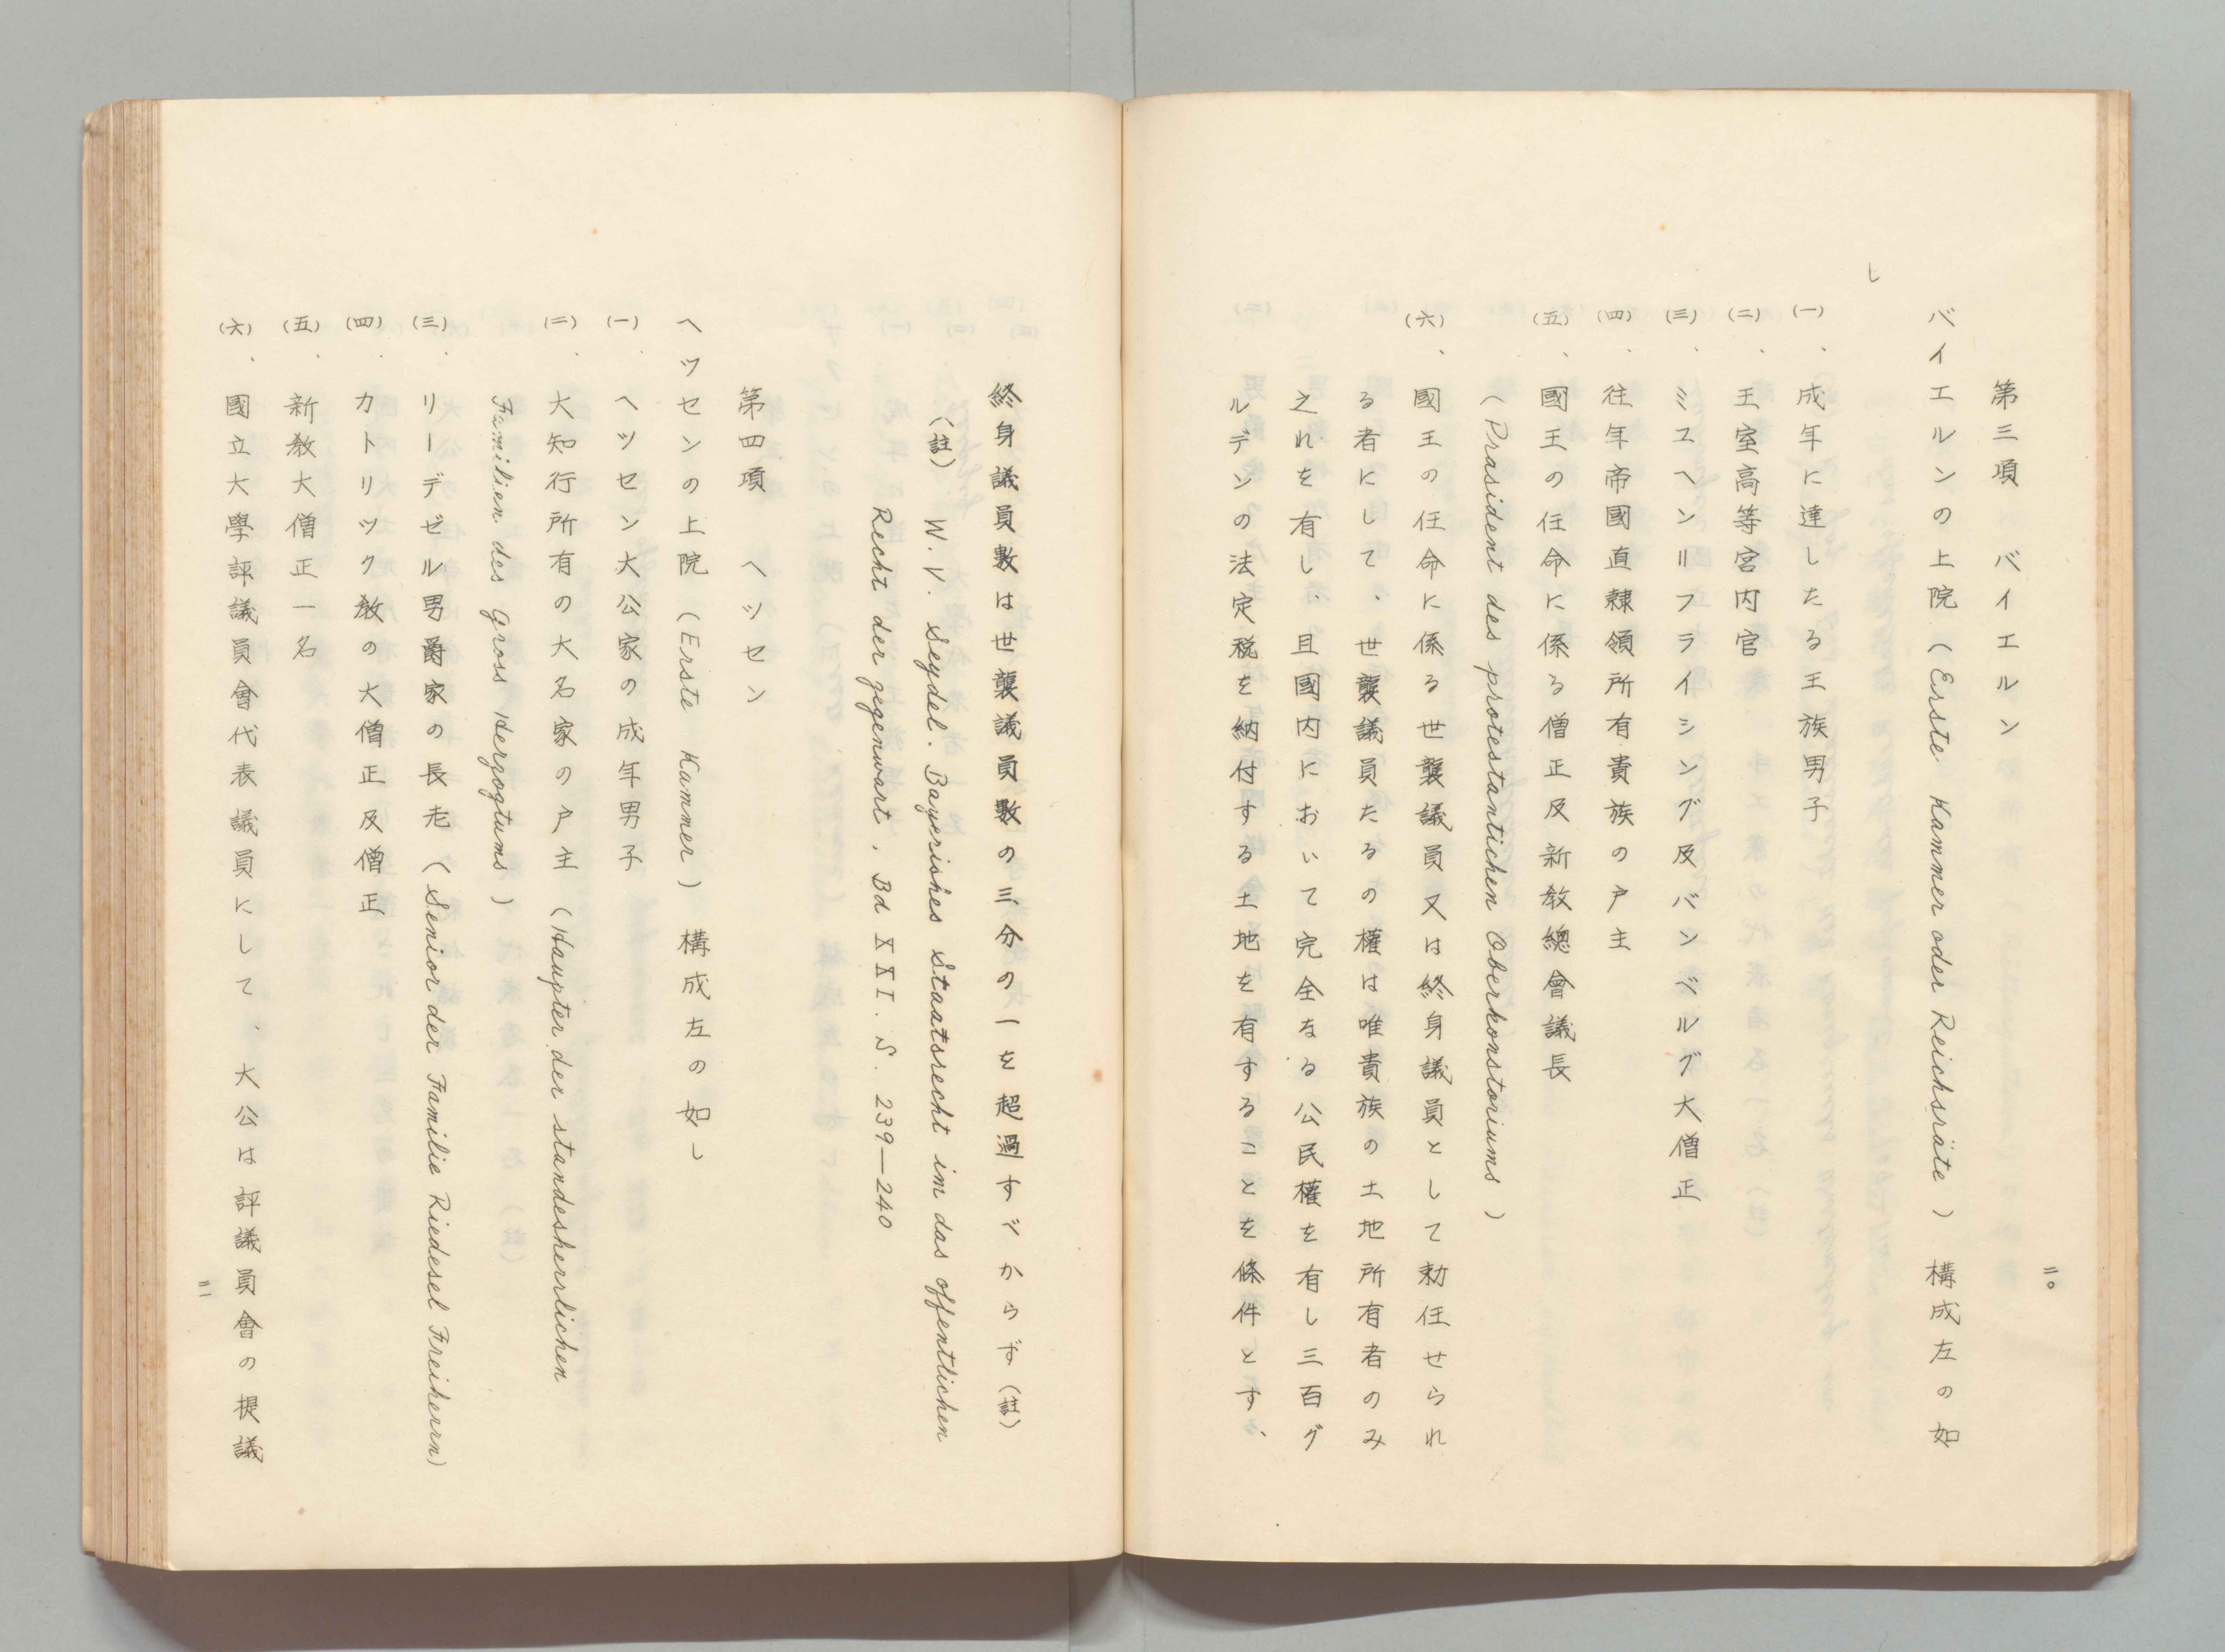 二〇
第三項　バイエルン
バイエルンの上院（Erste Kammer oder Reichsräte）構成左の如
し
(一)、成年に達したる王族男子
(二)、王室高等宮内官
(三)、ミユヘン＝フライシング及バンベルグ大僧正
(四)、往年帝國直隷領所有貴族の戸主
(五)、國王の任命に係る僧正及新敎總會議長
（Prasident des protestantichen Oberkonstoriums）
(六)、國王の任命に係る世襲議員又は終身議員として勅任せられ
る者にして、世襲議員たるの權は唯貴族の土地所有者のみ
之れを有し、且國内において完全なる公民權を有し三百グ
ルデンの法定税を納付する土地を有することを條件とす、
終身議員數は世襲議員數の三分の一を超過すべからず（註）
（註）　W. V. Seydel. Bayerishes Staatsrecht im das offentlichen
Recht der gegenwart, Bd XXI. S. 239―240
第四項　ヘツセン
ヘツセンの上院（Erste Kammer）構成左の如し
(一)、ヘツセン大公家の成年男子
(二)、大知行所有の大名家の戸主（Haupter der standesherrlichen
Familien des Gross Hergogtums）
(三)、リーデゼル男爵家の長老（Senior der Familie Riedesel Freiherrn）
(四)、カトリツク敎の大僧正及僧正
(五)、新敎大僧正一名
(六)、國立大學評議員會代表議員にして、大公は評議員會の提議
二一